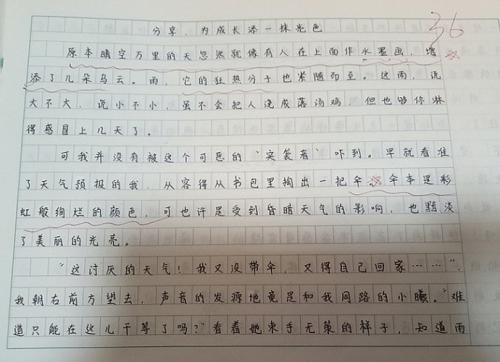 分享，为成长添一抹亮色
36
原本晴空万里的天忽然就像有人在上面作水墨画，增
添了几朵乌云。雨，它的狂热分子也紧随而至。这雨，说
大不大，说小不小，虽不会把人浇成落汤鸡，但也够你淋
得感冒上几天了。
可我并没有被这个可恶的“突袭者”吓到。早就看准
了天气预报的我，从容得从书包里掏出一把伞。伞本是彩
虹般绚烂的颜色，可也许是受到昏暗天气的影响，也黯淡
了美丽的光亮。
“这讨厌的天气！我又没带伞，又得自己回家……”，
我朝右前方望去，声音的发源地竟是和我同路的小曦。“难
道只能在这儿干等了吗？”看着她束手无策的样子，知道雨